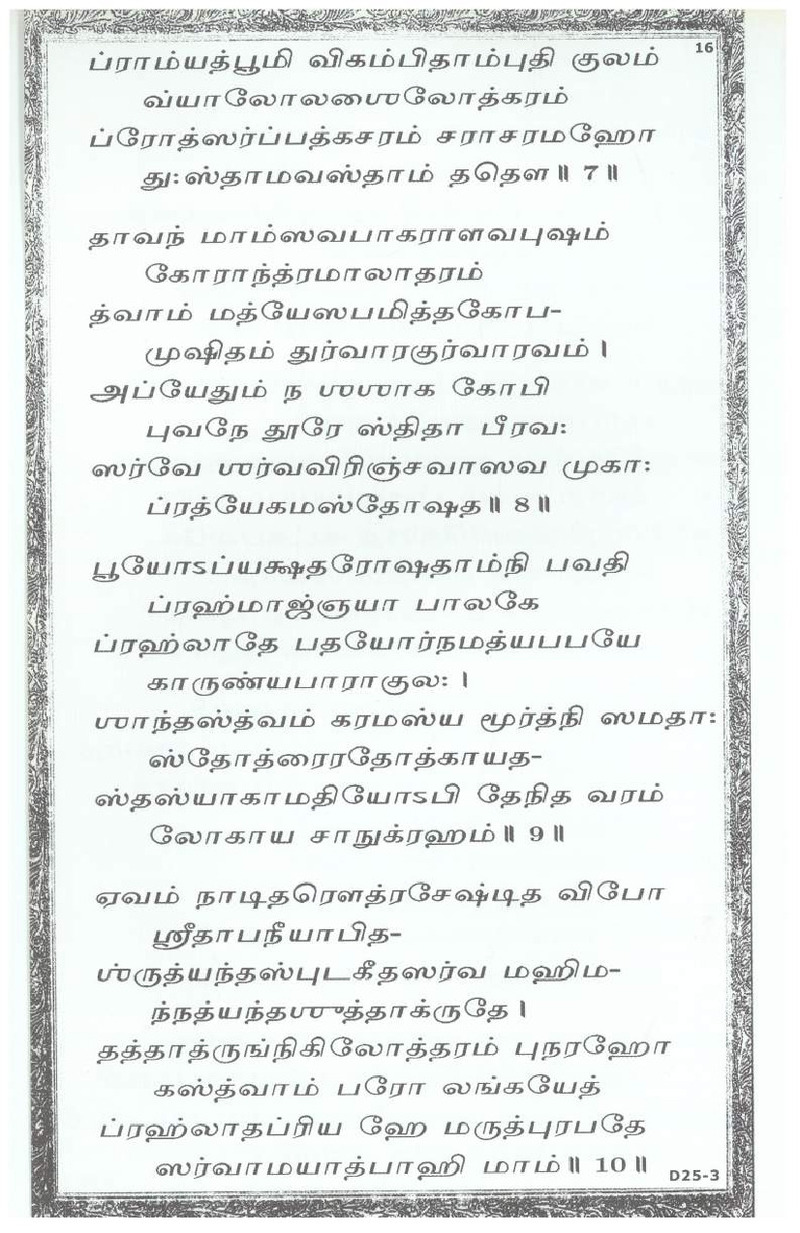 16
ப்ராம்யத்பூமி விகம்பிதாம்புதி குலம்
வ்யாலோலஶைலோத்கரம்
ப்ரோத்ஸர்ப்பத்கசரம் சராசரமஹோ
து:ஸ்தாமவஸ்தாம் ததௌ॥ 7॥
தாவந் மாம்ஸவபாகராளவபுஷம்
கோராந்த்ரமாலாதரம்
த்வாம் மத்யேஸபமித்தகோப-
முஷிதம் துர்வாரகுர்வாரவம்।
அப்யேதும் ந ஶஶாக கோபி
புவநே தூரே ஸ்திதா பீரவ:
ஸர்வே ஶர்வவிரிஞ்சவாஸவ முகா:
ப்ரத்யேகமஸ்தோஷத॥ 8॥
பூயோऽப்யக்ஷதரோஷதாம்நி பவதி
ப்ரஹ்மாஜ்ஞயா பாலகே
ப்ரஹ்லாதே பதயோர்நமத்யபபயே
காருண்யபாராகுல:।
ஶாந்தஸ்த்வம் கரமஸ்ய மூர்த்நி ஸமதா:
ஸ்தோத்ரைரதோத்காயத-
ஸ்தஸ்யாகாமதியோऽபி தேநித வரம்
லோகாய சாநுக்ரஹம்॥ 9॥
ஏவம் நாடிதரௌத்ரசேஷ்டித விபோ
ஸ்ரீதாபநீயாபித-
ஶ்ருத்யந்தஸ்புடகீதஸர்வ மஹிம-
ந்நத்யந்தஶுத்தாக்ருதே।
தத்தாத்ருங்நிகிலோத்தரம் புநரஹோ
கஸ்த்வாம் பரோ லங்கயேத்
ப்ரஹ்லாதப்ரிய ஹே மருத்புரபதே
ஸர்வாமயாத்பாஹி மாம்॥ 10॥
D25-3